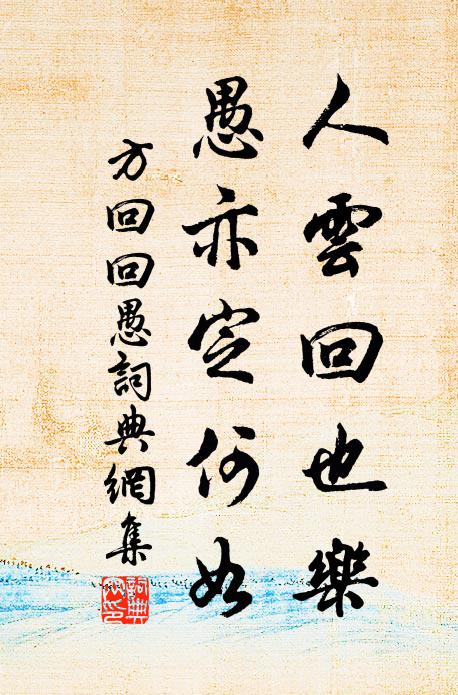 人雲回也樂
愚亦定何如
方回回愚詞典網集